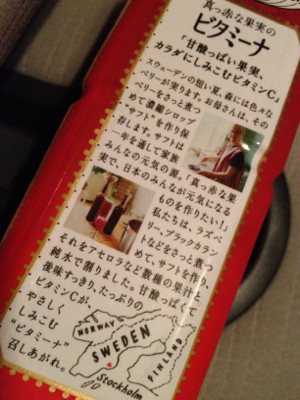 真っ赤な果実の
ビタミーナ
「甘酸っぱい果実、
カラダにしみこむビタミンC」
スウェーデンの短い夏、森には色々な
ベリーが実ります。お母さんは、その
ベリーをさっと煮つ
めて濃縮シロップ
"サフト"を作り保
存します。サフトは
一年を通して家族
みんなの元気の源。「真っ赤な果
実で、日本のみんなが元気になる
ものを作りたい!」
私たちは、ラズベ
リー、ブラックカラン
トなどをさっと煮つ
めて、サフトを作り、
それをアセロラなど数種の果汁と
純水で割りました。甘酸っぱくて
後味すっきり、たっぷりの
ビタミンCが、
やさしく
しみこむ
"ビタミーナ"
召しあがれ。
NORWAY
SWEDEN
FINLAND
Stockholm